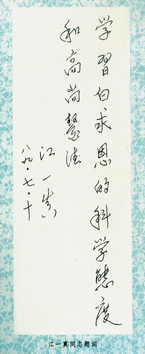 学習白求恩的科学态度
和高尚醫德
江一真
八九·七·十
江一真同志题词